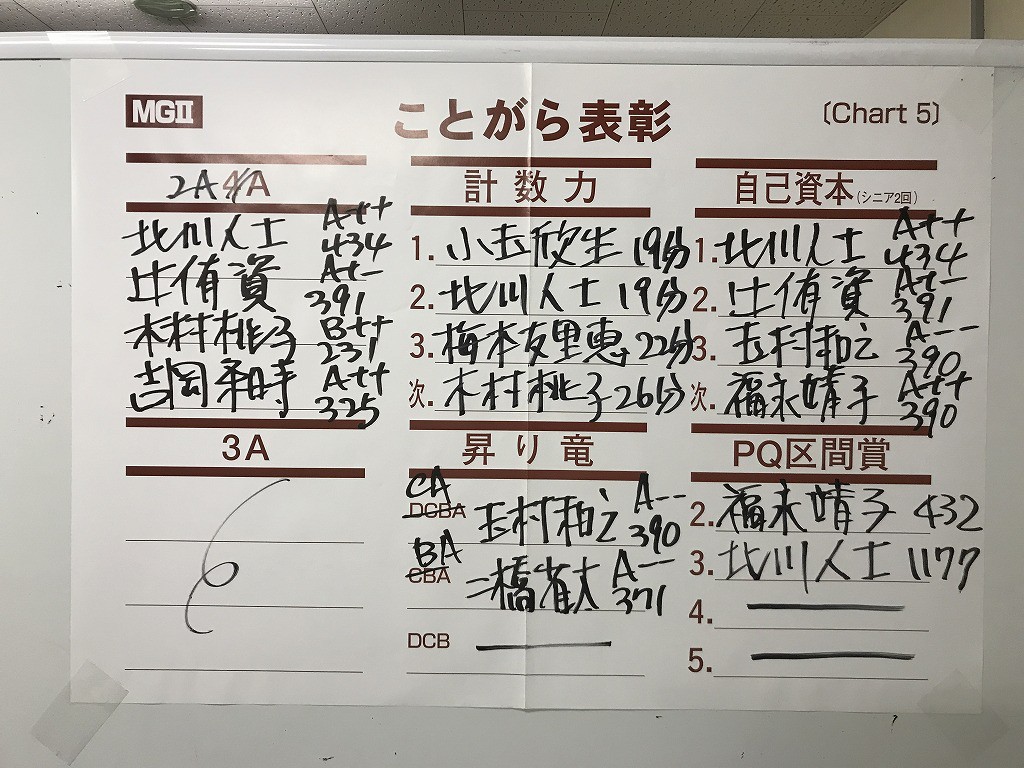 MGⅡ
ことがら表彰
〔Chart 5〕
2A 4A
北川人士 A++ 434
辻侑資 A+- 391
木村桃子 B++ 231
吉岡和時 A++ 325
3A
計数力
1. 小玉欣生 19分
2. 北川人士 19分
3. 梅本友里恵 22分
次. 木村桃子 26分
昇り竜
CA
DCBA 玉村和之 A-- 390
BA
CBA 二橋省太 A-- 371
DCB
自己資本(シニア2回)
1. 北川人士 A++ 434
2. 辻侑資 A+- 391
3. 玉村和之 A-- 390
次. 福永靖子 A++ 390
PQ区間賞
2. 福永靖子 432
3. 北川人士 1177
4.
5.